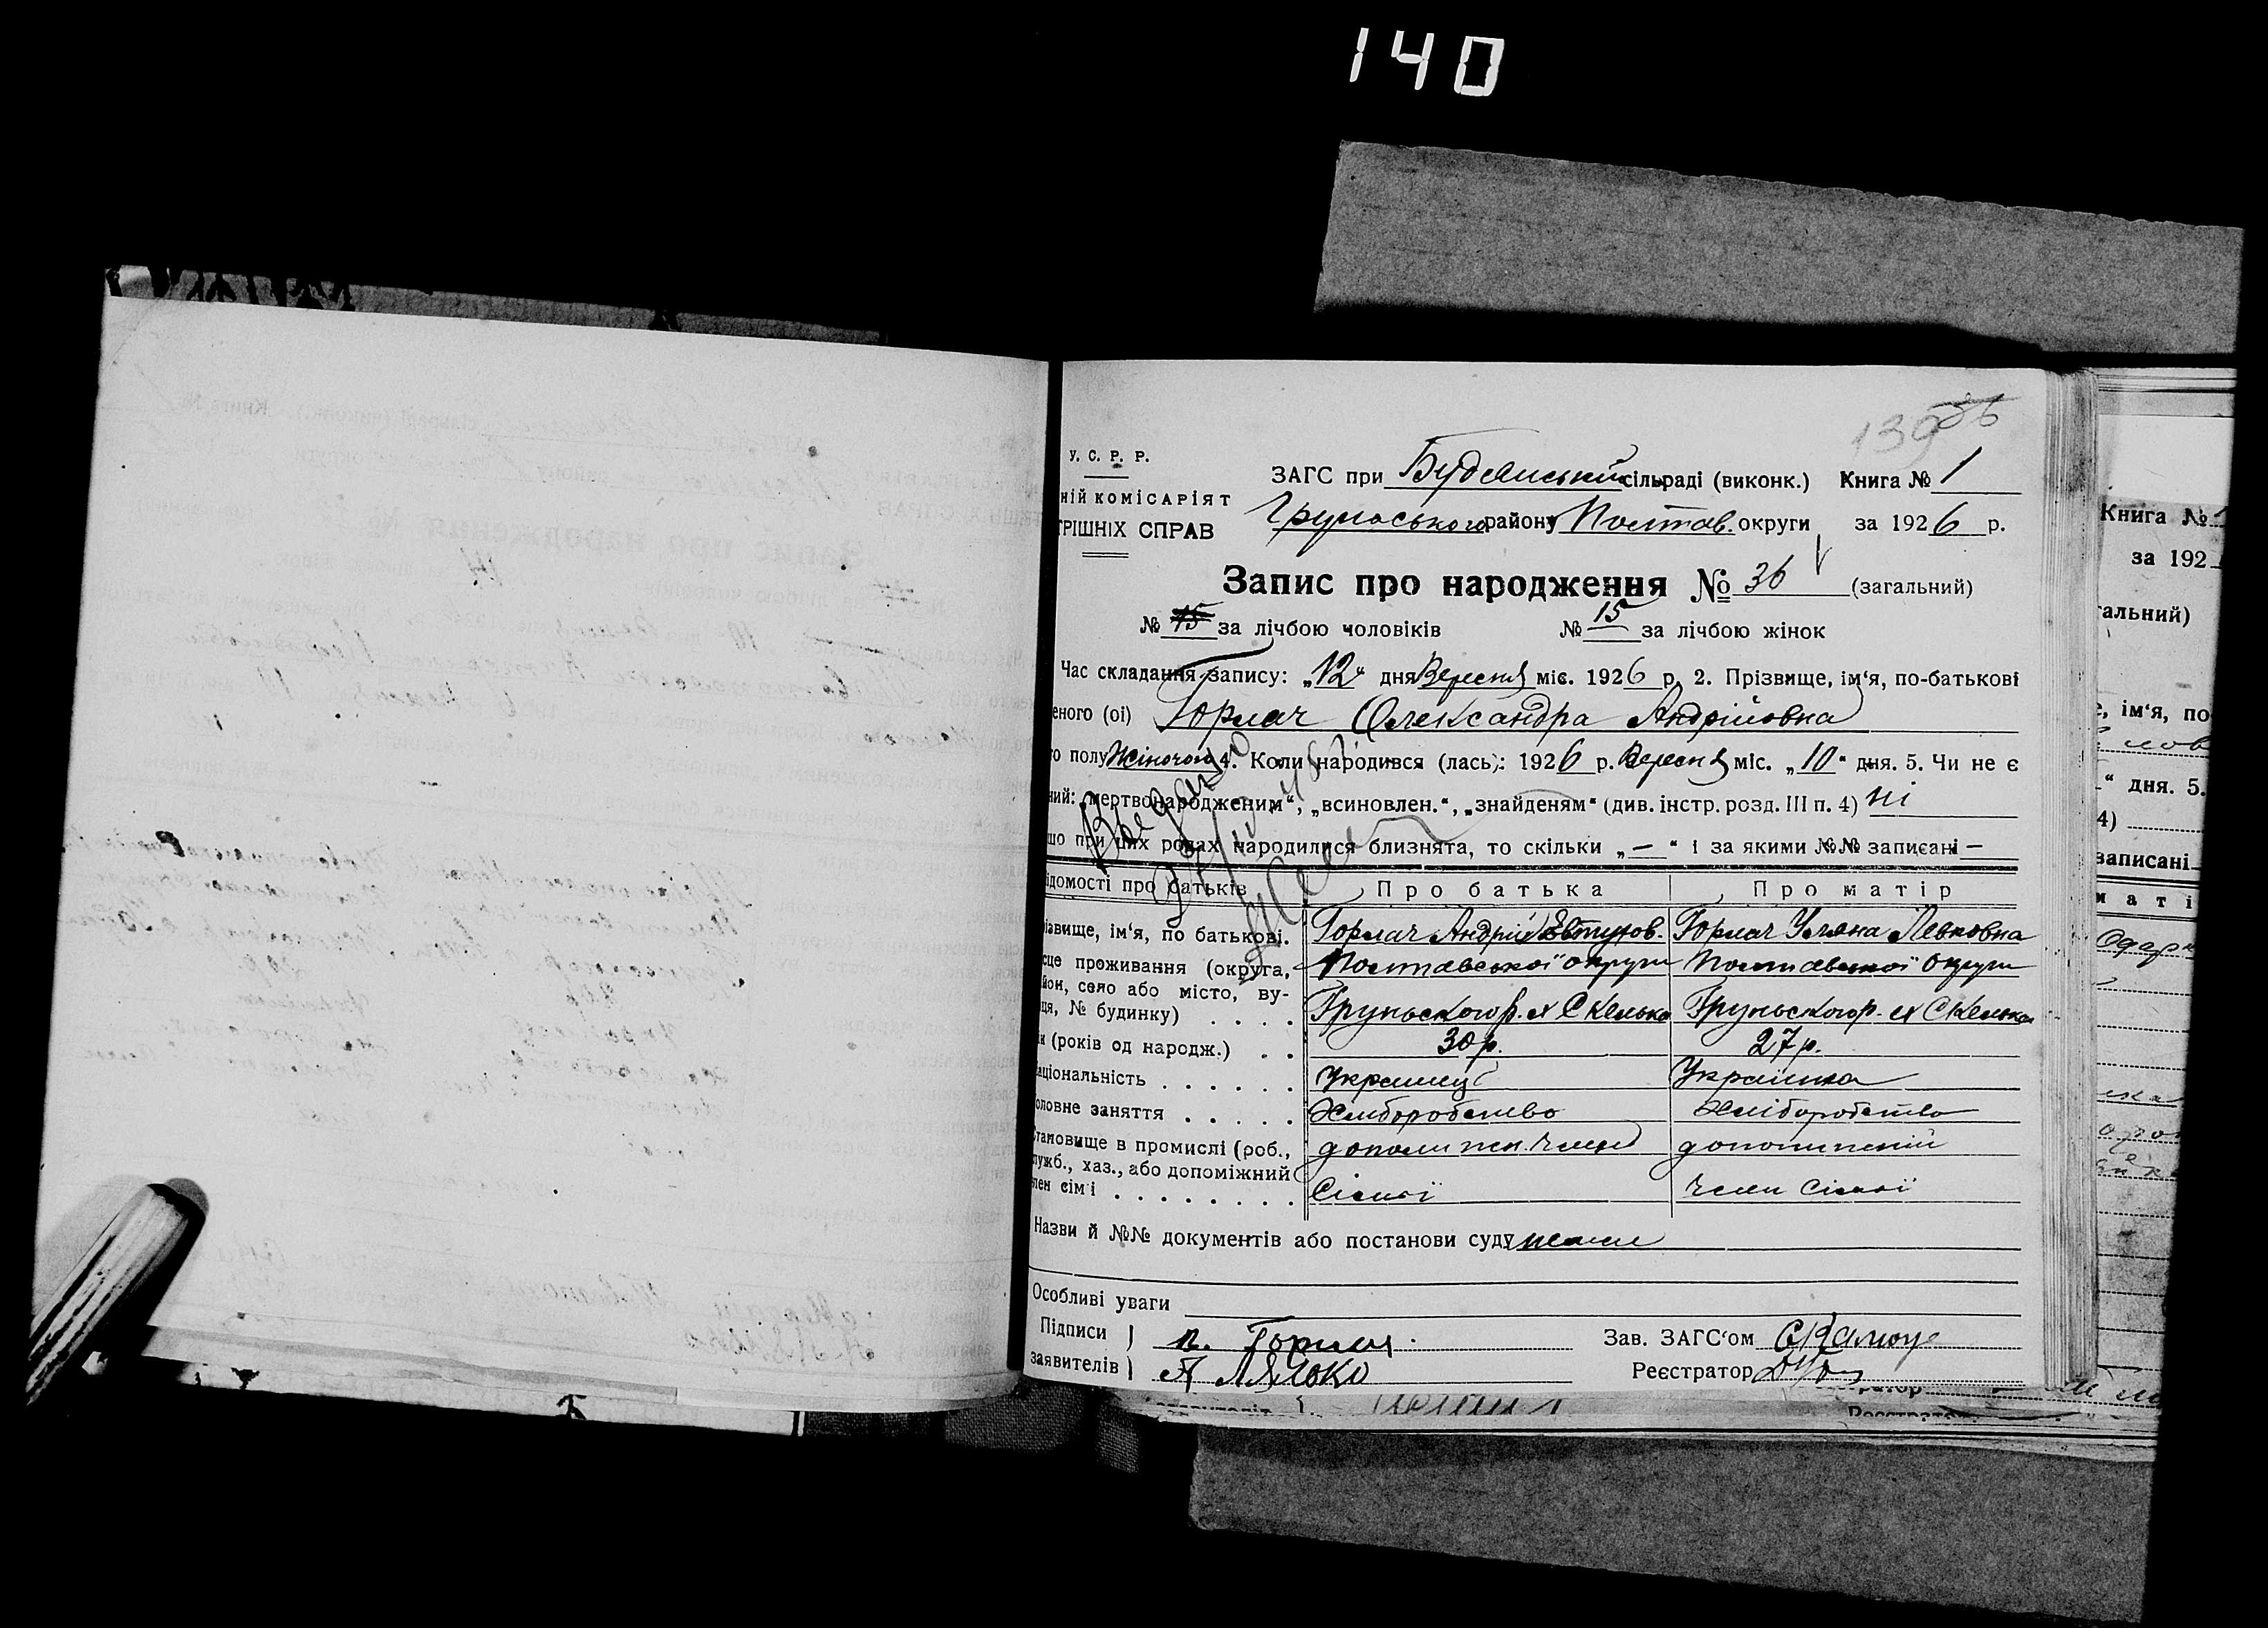 140
139 36
У. С. Р. Р.
ЗАГС при Будянській сільраді (виконк.) Книга № 1
ній КОМІСАРІЯТ
Грунського району Полтав. округи за 1926 р.
ТРІШНІХ СПРАВ
Запис про народження № 36 (загальний)
№ 15 за лічбою чоловіків № 15 за лічбою жінок
Час складання запису: „12“ дня Вересня міс. 1926 р. 2. Прізвище, ім‘я, по-батькові
еного (ої) Горлач Олександра Андрійовна
го полу Жіночого 4. Коли народився (лась): 1926 р. Вересня міс. „10“ дня. 5. Чи не є
ний: „мертвонародженим“, „всиновлен.“, „знайденям“ (див. інстр. розд. III п. 4) ні
що при цих родах народилися близнята, то скільки „—“ і за якими №№ записані —
ідомості про батьків Про батька Про матір
ізвище, ім‘я, по батькові. Горлач Андрій Євтухов. Горлач Уляна Левковна
сце проживання (округа, Полтавської округи Полтавської округи
йон, село або місто, ву-
ця, № будинку) . . . . Грунського р. х Скелька Грунського р. х Скелька
ік (років од народж.) . . 30 р. 27 р.
аціональність . . . . . . Українец Українка
оловне заняття . . . . . Хлиборобство Хліборобство
Становище в промислі (роб., допоміжн. член допоміжній
лужб., хаз., або допоміжний
лен сім‘ї . . . . . . . . Сім'ї член сім'ї
Назви й №№ документів або постанови суду немає
Особливі уваги
Підписи } п. Горлач Зав. ЗАГС‘ом
заявителів } Лялько Реєстратор
Видано
Книга №
за 192
гальний)
е, ім‘я, по
“ дня. 5.
4)
записані
маті
Одарк